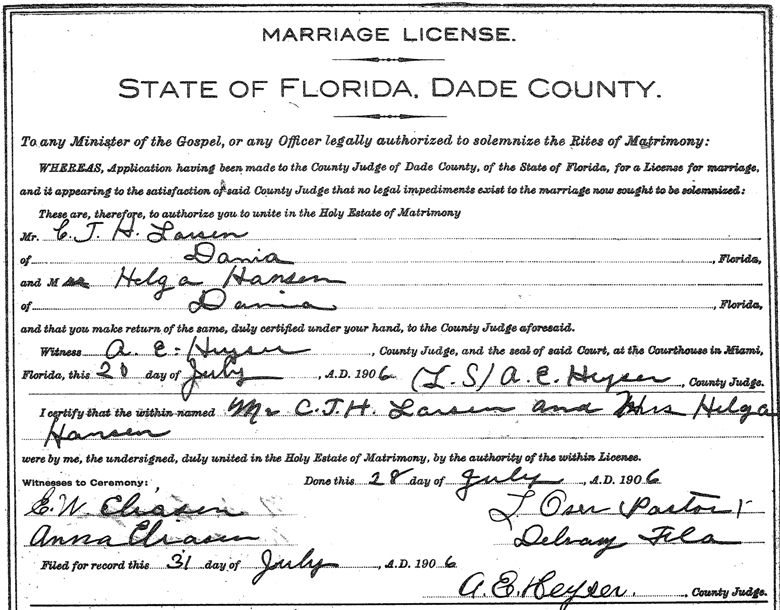 MARRIAGE LICENSE.
STATE OF FLORIDA, DADE COUNTY.
To any Minister of the Gospel, or any Officer legally authorized to solemnize the Rites of Matrimony:
WHEREAS, Application having been made to the County Judge of Dade County, of the State of Florida, for a License for marriage,
and it appearing to the satisfaction of said County Judge that no legal impediments exist to the marriage now sought to be solemnized:
These are, therefore, to authorize you to unite in the Holy Estate of Matrimony
Mr. C. J. H. Larsen
of Dania, Florida,
and M rs Helga Hansen
of Dania, Florida,
and that you make return of the same, duly certified under your hand, to the County Judge aforesaid.
Witness A. E. Heyser, County Judge, and the seal of said Court, at the Courthouse in Miami,
Florida, this 20 day of July, A.D. 1906 (L.S) A. E. Heyser, County Judge.
I certify that the within named Mr C. J. H. Larsen and Mrs Helga
Hansen
were by me, the undersigned, duly united in the Holy Estate of Matrimony, by the authority of the within License.
Witnesses to Ceremony: Done this 28 day of July, A.D. 1906
E. W. Eliasen Pastor
Anna Eliasen Delray Fla
Filed for record this 31 day of July, A.D. 1906
A. E. Heyser, County Judge.